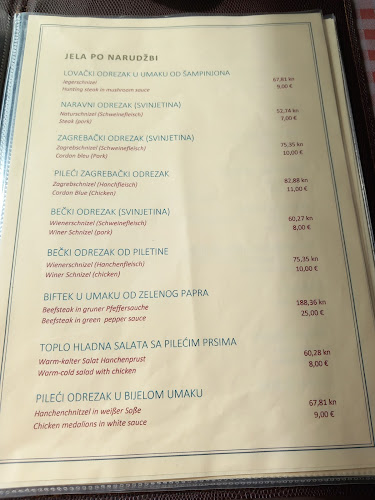 JELA PO NARUDŽBI
LOVAČKI ODREZAK U UMAKU OD ŠAMPINJONA
Jegerschnizel
Hunting steak in mushroom sauce
67,81 kn
9,00 €
NARAVNI ODREZAK (SVINJETINA)
Naturschnizel (Schweinefleisch)
Steak (pork)
52,74 kn
7,00 €
ZAGREBAČKI ODREZAK (SVINJETINA)
Zagrebschnizel (Schweinefleisch)
Cordon bleu (Pork)
75,35 kn
10,00 €
PILEĆI ZAGREBAČKI ODREZAK
Zagrebschnizel (Hanchfleisch)
Cordon Blue (Chicken)
82,88 kn
11,00 €
BEČKI ODREZAK (SVINJETINA)
Wienerschnizel (Schweinefleisch)
Winer Schnizel (pork)
60,27 kn
8,00 €
BEČKI ODREZAK OD PILETINE
Wienerschnizel (Hanchenfleisch)
Winer Schnizel (chicken)
75,35 kn
10,00 €
BIFTEK U UMAKU OD ZELENOG PAPRA
Beefsteak in gruner Pfeffersauche
Beefsteak in green pepper sauce
188,36 kn
25,00 €
TOPLO HLADNA SALATA SA PILEĆIM PRSIMA
Warm-kalter Salat Hanchenprust
Warm-cold salad with chicken
60,28 kn
8,00 €
PILEĆI ODREZAK U BIJELOM UMAKU
Hanchenchnitzel in weißer Soße
Chicken medalions in white sauce
67,81 kn
9,00 €